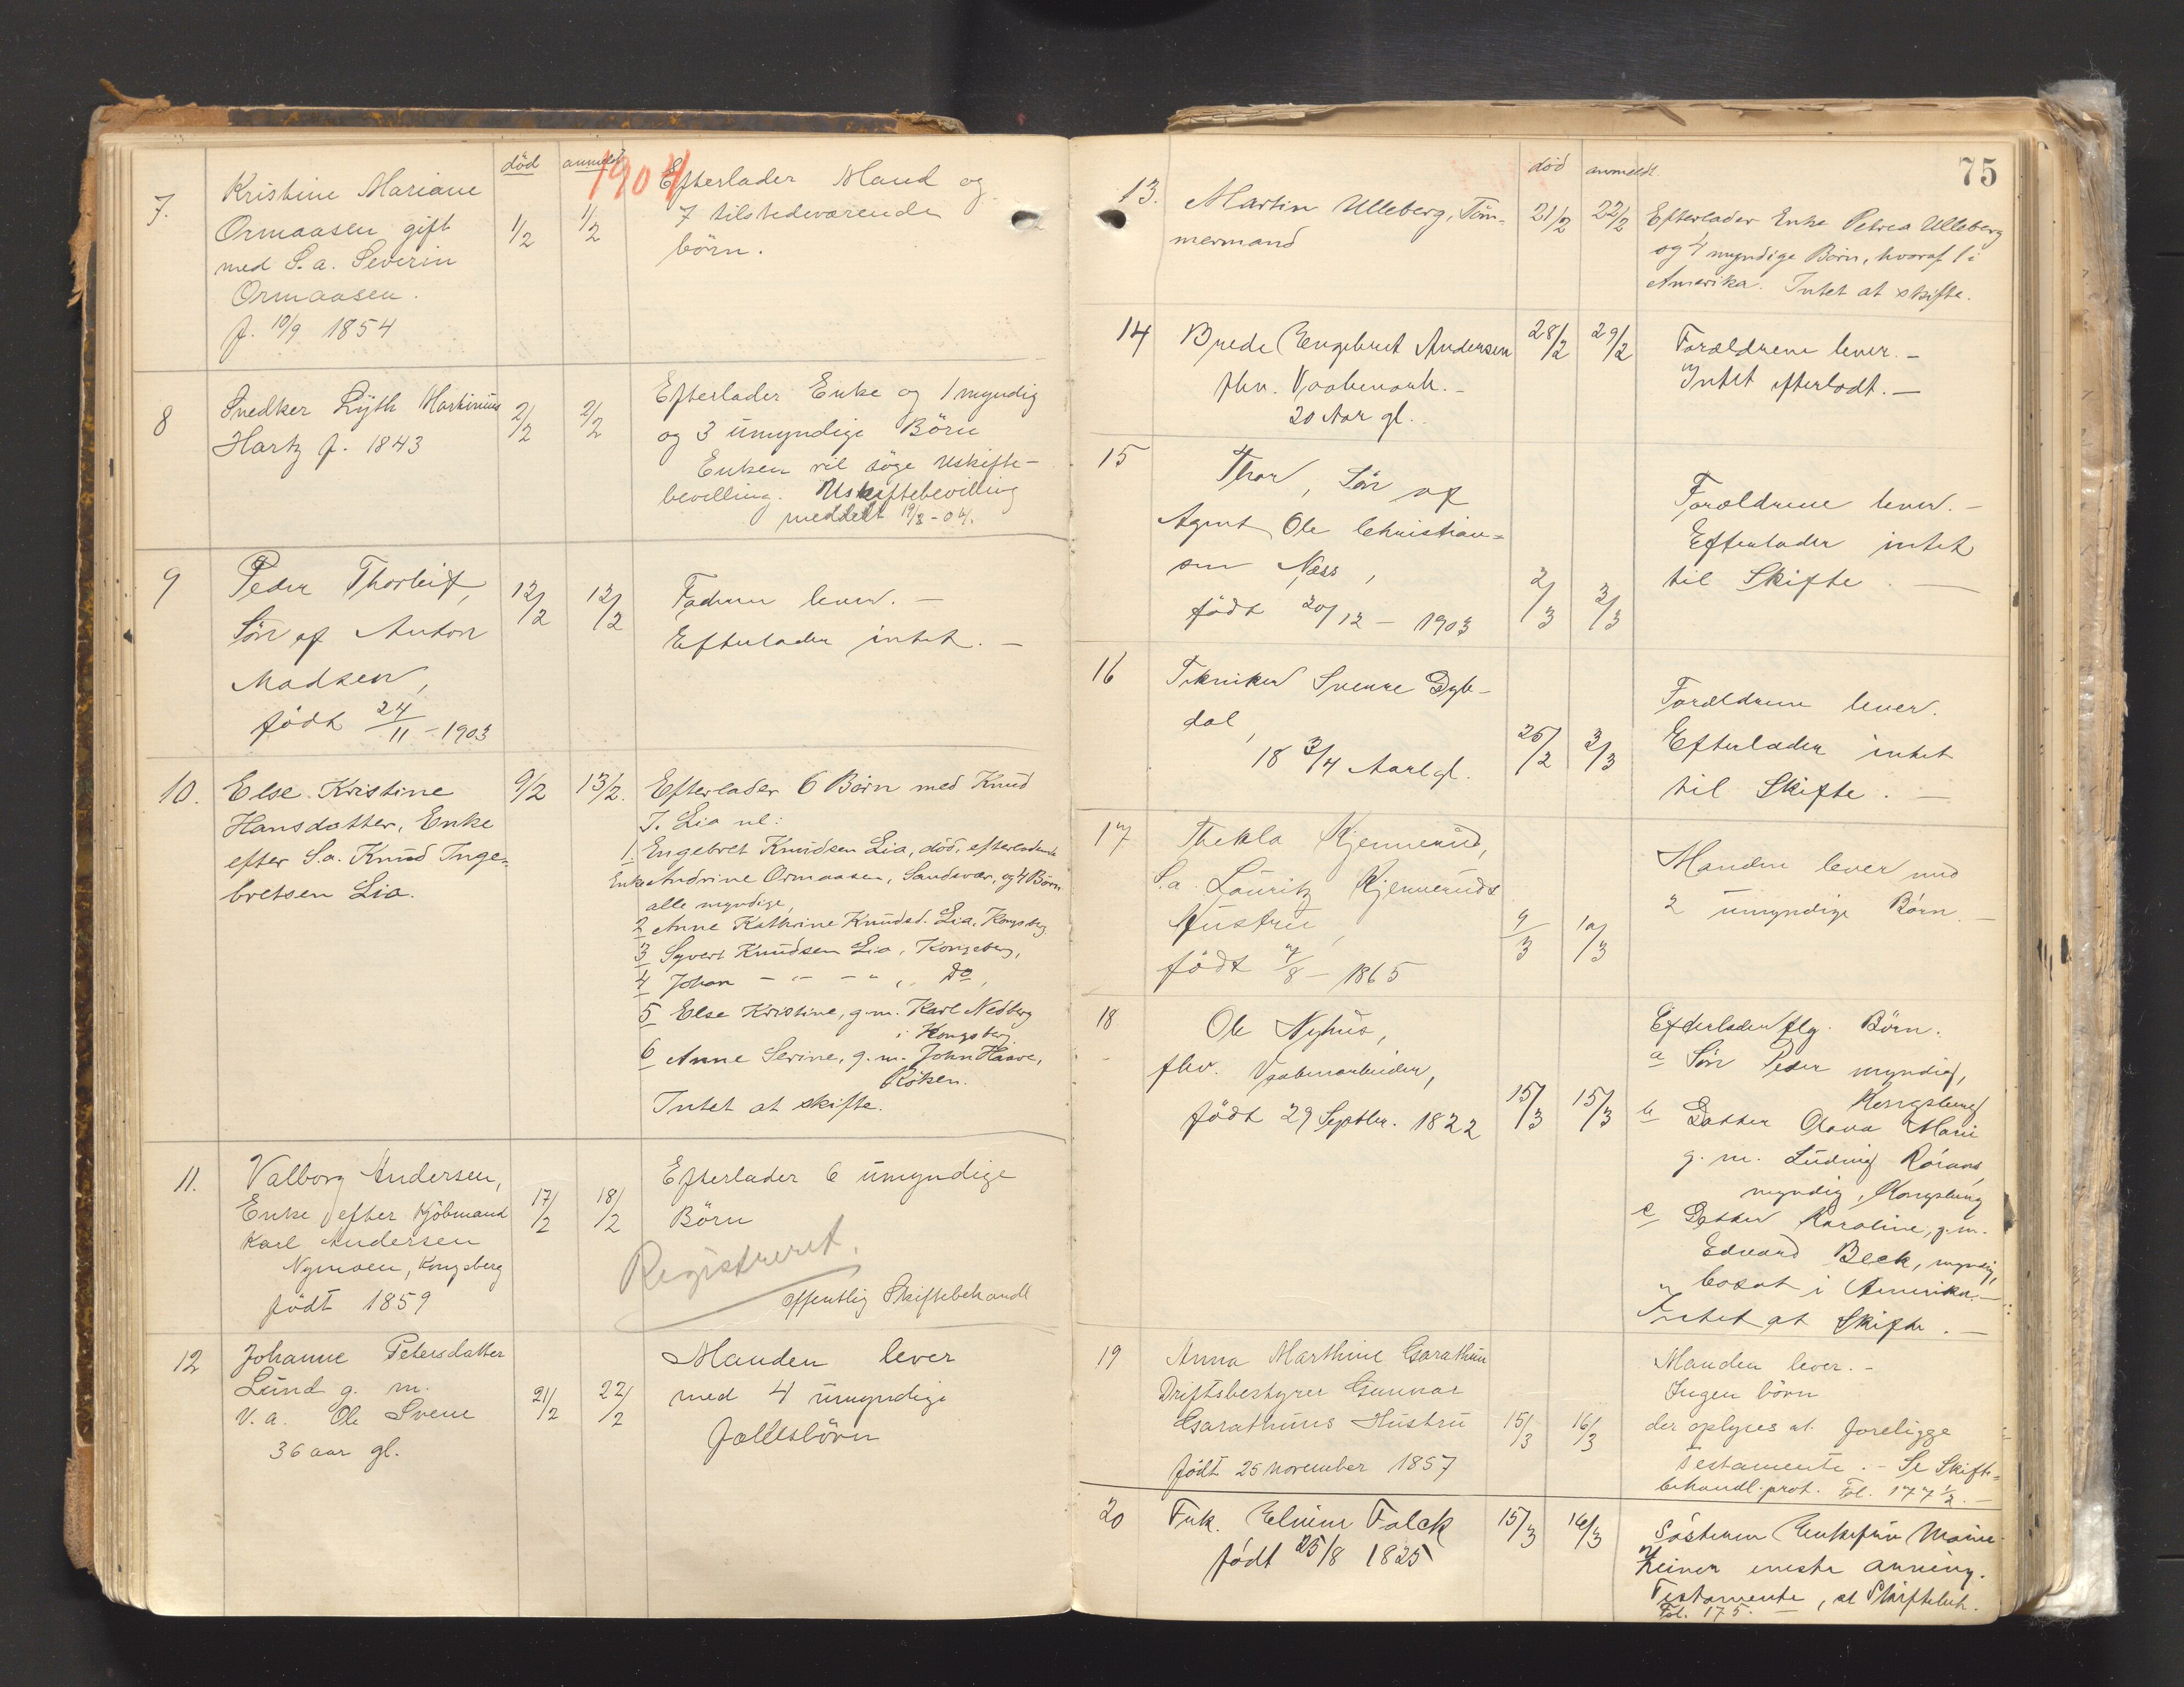 død anmeldt
1904
7. Kristine Mariane
Ormaasen gift
med S.a. Severin
Ormaasen.
f. 10/9 1854
1/2 1/2
Efterlader Mand og
7 tilstedeværende
børn.
8 Snedker Lyth Martinius
Hartz f. 1843
2/2 2/2
Efterlader Enke og 1 myndig
og 3 umyndige Børn
Enken vil søge Uskifte-
bevilling. Uskiftebevilling
meddelt 19/2-04.
9 Peder Thorleif,
Søn af Anton
Madsen,
født 24/11 - 1903
12/2 12/2
Faderen lever. -
Efterlader intet. -
10. Else Kristine
Hansdatter, Enke
efter S.a. Knud Inge-
bretsen Lia.
9/2 13/2.
Efterlader 6 Børn med Knud
I. Lia nl:
1. Engebret Knudsen Lia, død, efterladende
Enke Andrine Ormaasen, Sandsvær, og 4 Børn
alle myndige,
2 Anne Kathrine Knudsd. Lia, Kongsberg
3 Syvert Knudsen Lia, Kongsberg,
4 Johan - " - " , Do,
5 Else Kristine, g.m. Karl Nedberg
i Kongsberg.
6 Anne Serine, g.m. John Haave,
Røken.
Intet at skifte.
11. Valborg Andersen,
Enke efter Kjøbmand
Karl Andersen
Nymoen, Kongsberg
født 1859
17/2 18/2
Efterlader 6 umyndige
Børn
Registreret.
offentlig Skiftebehandl
12 Johanne Petersdatter
Lund g. m.
V.a. Ole Svene
36 aar gl.
21/2 22/2
Manden lever
med 4 umyndige
fællesbørn
75
død anmeldt.
13. Martin Ulleberg, Tøm-
mermand
21/2 22/2
Efterlader Enke Petrea Ulleberg
og 4 myndige Børn, hvoraf 1 i
Amerika. Intet at skifte.
14 Brede Engebret Andersen
fhv. Vaabenarb. -
20 Aar gl.
28/2 29/2
Forældrene lever. -
Intet efterladt. -
15 Thor, Søn af
Agent Ole Christian-
sen Næss,
født 20/12 - 1903
2/3 3/3
Forældrene lever. -
Efterlader intet
til Skifte. -
16 Tekniker Sverre Dyb-
dal,
18 3/4 Aar gl.
25/2 3/3
Forældrene lever.
Efterlader intet
til Skifte. -
17 Thekla Kjennerud,
S.a. Lauritz Kjenneruds
Hustru,
født 7/8 - 1865
9/3 10/3
Manden lever med
2 umyndige Børn. -
18 Ole Nyhus,
fhv. Vaabenarbeider,
født 29 Septbr. 1822
15/3 15/3
Efterlader flg. Børn.
a Søn Peder myndig,
Kongsberg
b Datter Olava Marie
g. m. Ludvig
myndig, Kongsberg
c Datter Karoline, g.m.
Edvard Beck, myndig,
bosat i Amerika. -
Intet at Skifte. -
19 Anna Marthine Garathun
Driftsbestyrer Gunnar
Garathuns Hustru
født 25 November 1857
15/3 16/3
Manden lever. -
Ingen børn
der oplyses at foreligge
Testamente. - Se Skifte-
behandl.prot. Fol. 177 1/2. -
20 Frk. Elvine Falck
født 25/8 1825
15/3 16/3
Søsteren Enkefru
eneste arving.
Testamente, se Skiftebeh.
Fol. 175. -